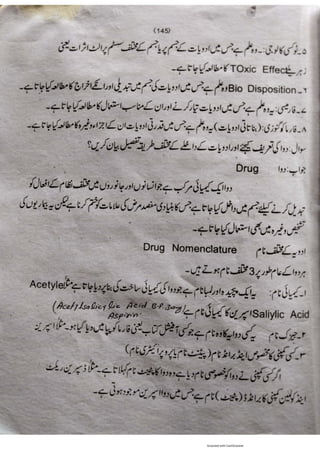 (145)
۵۔ ٹوکسی کالوجی:۔ وہ علم ہے جس میں ادویات کے جسم پر یا جسم کے مختلف سسٹم پر الٹ اثرات یعنی
زہریلے TOxic Effect کا مطالعہ کیا جاتا ہے۔
۶۔ Bio Disposition وہ علم ہے جس میں ادویات کی جسم میں تبدیلی اور انکے اخراج کا مطالعہ کیا جاتا ہے۔
۷۔ فارمیسی: یہ وہ علم ہے جس میں ادویات تیار کرنے اور ان کے مناسب استعمال کا مطالعہ کیا جاتا ہے۔
۸۔ فارماکوگنوزی: (بناتاتی ادویات) یہ وہ علم ہے جس میں قدرتی ادویات ان کے اجزاء وغیرہ کا مطالعہ کیا جاتا ہے۔
سوال: دوا کی تعریف کیجئے اور ادویات کے داخلے کے مختلف طریقے تفصیل بیان کریں؟
جواب: دوا Drug
دوا ایک کیمیائی مرکب ہے جو انسانوں اور جانوروں میں مختلف نظام کے افعال کو
تبدیل کرنے کیلئے جسم میں داخل کیا جاتا ہے جس کا بنیادی مقصد مرض کی علامات کو ختم کرنا ہے لیکن یہ بیماریوں کی
تشخیص وغیرہ میں بھی استعمال کیا جاتا ہے۔
ادویہ کے مختلف نام Drug Nomenclature
ہر دوا کے عام طور پر 3 مختلف نام ہوتے ہیں۔
۱۔ کیمیائی نام: یہ ایک پیچیدہ اور لمبا نام ہے جو دوا کی کیمیائی ساخت کی بنا پر دیا جاتا ہے مثلاً Acetyle
Saliylic Acid اسپرین کا کیمیائی نام ہے (Acetylsalicylic Acid
Aspirin
۲۔ جنرک نام: یہ کسی دوا کا وہ نام ہے جو کسی آفیشل کتاب یعنی فارماکوپیا میں دیا گیا ہو۔ مثلاً اسپرین
۳۔ کسی کمپنی کا مخصوص اپنا برانڈ نام (پیٹینٹ نام یا پروپرائیٹری نام)
اگر کسی کمپنی نے دوا کو خصوصی نام دیا ہے وہ دوا کا پیٹنٹ نام کہلاتا ہے۔ مثلاً ڈسپرین ریکٹ
اینڈ کولمین کمپنی کا برانڈڈ (پیٹینٹ) نام ہے جس میں دوا اسپرین موجود ہوتی ہے۔
Scanned with CamScanner